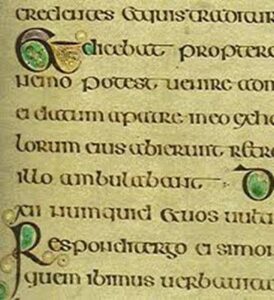 credentes &quis traditur
Et dicebat propter
nemo potest uenire adm
ei datum apatre meo
lorum eius abierunt r&r
illo ambulabant D
xii numquid &uos uult
Respondit ergo ei simo
quem ibimus uerbauita